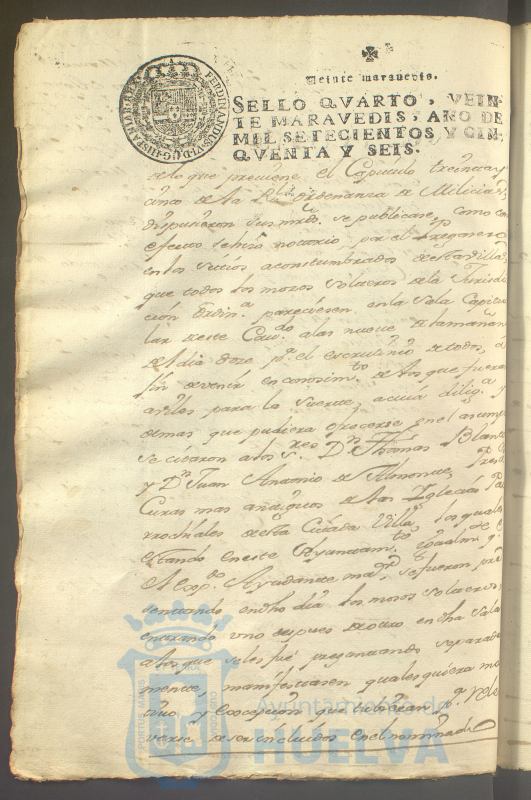 Veinte maravedis.
SELLO QVARTO, VEIN-
TE MARAVEDIS, AÑO DE
MIL SETECIENTOS Y CIN-
QVENTA Y SEIS.
FERDINANDUS VI D G HISPANIAR REX
de lo que previene el Capitulo treinta y
cinco de la Rl. Ordenanza de Milicias,
dispusieron sus mrds. se publicase, como con
efecto se hizo notorio por el Pregonero
en los sitios acostumbrados de esta villa
que todos los mozos solteros de la Jurisdi
ción Ordin.a pareciesen en la Sala Capitu
lar de este Cav.do a las nueve de la mañan
del dia doze p.a el escrutinio de todos, a
fin de venir en conosim.to de los que fuera
aviles para la suerte, a cuia dilig.a y
demas que pudiera ofrecerse en el asump
se citaron a los s.res D.n Thomas Blan
y D.n Juan Antonio de Almonte, Pres
Curas mas antiguos de las Iglecias Pa
rrochiales de esta Citada Villa, los quale
estando en este Ayuntam.to
el exp.do Ayudante ma.r, se fueron pre
sentando en dho dia los mozos solteros,
entrando uno despues de otro en dha Sala
a los que se les fué preguntando separada
mente, manifestasen qualesquiera mo
tivo y excepcion que tubieran p.a
verse de ser incluidos en el nominado
PORTUS MARIS
Ayuntamiento de
HUELVA